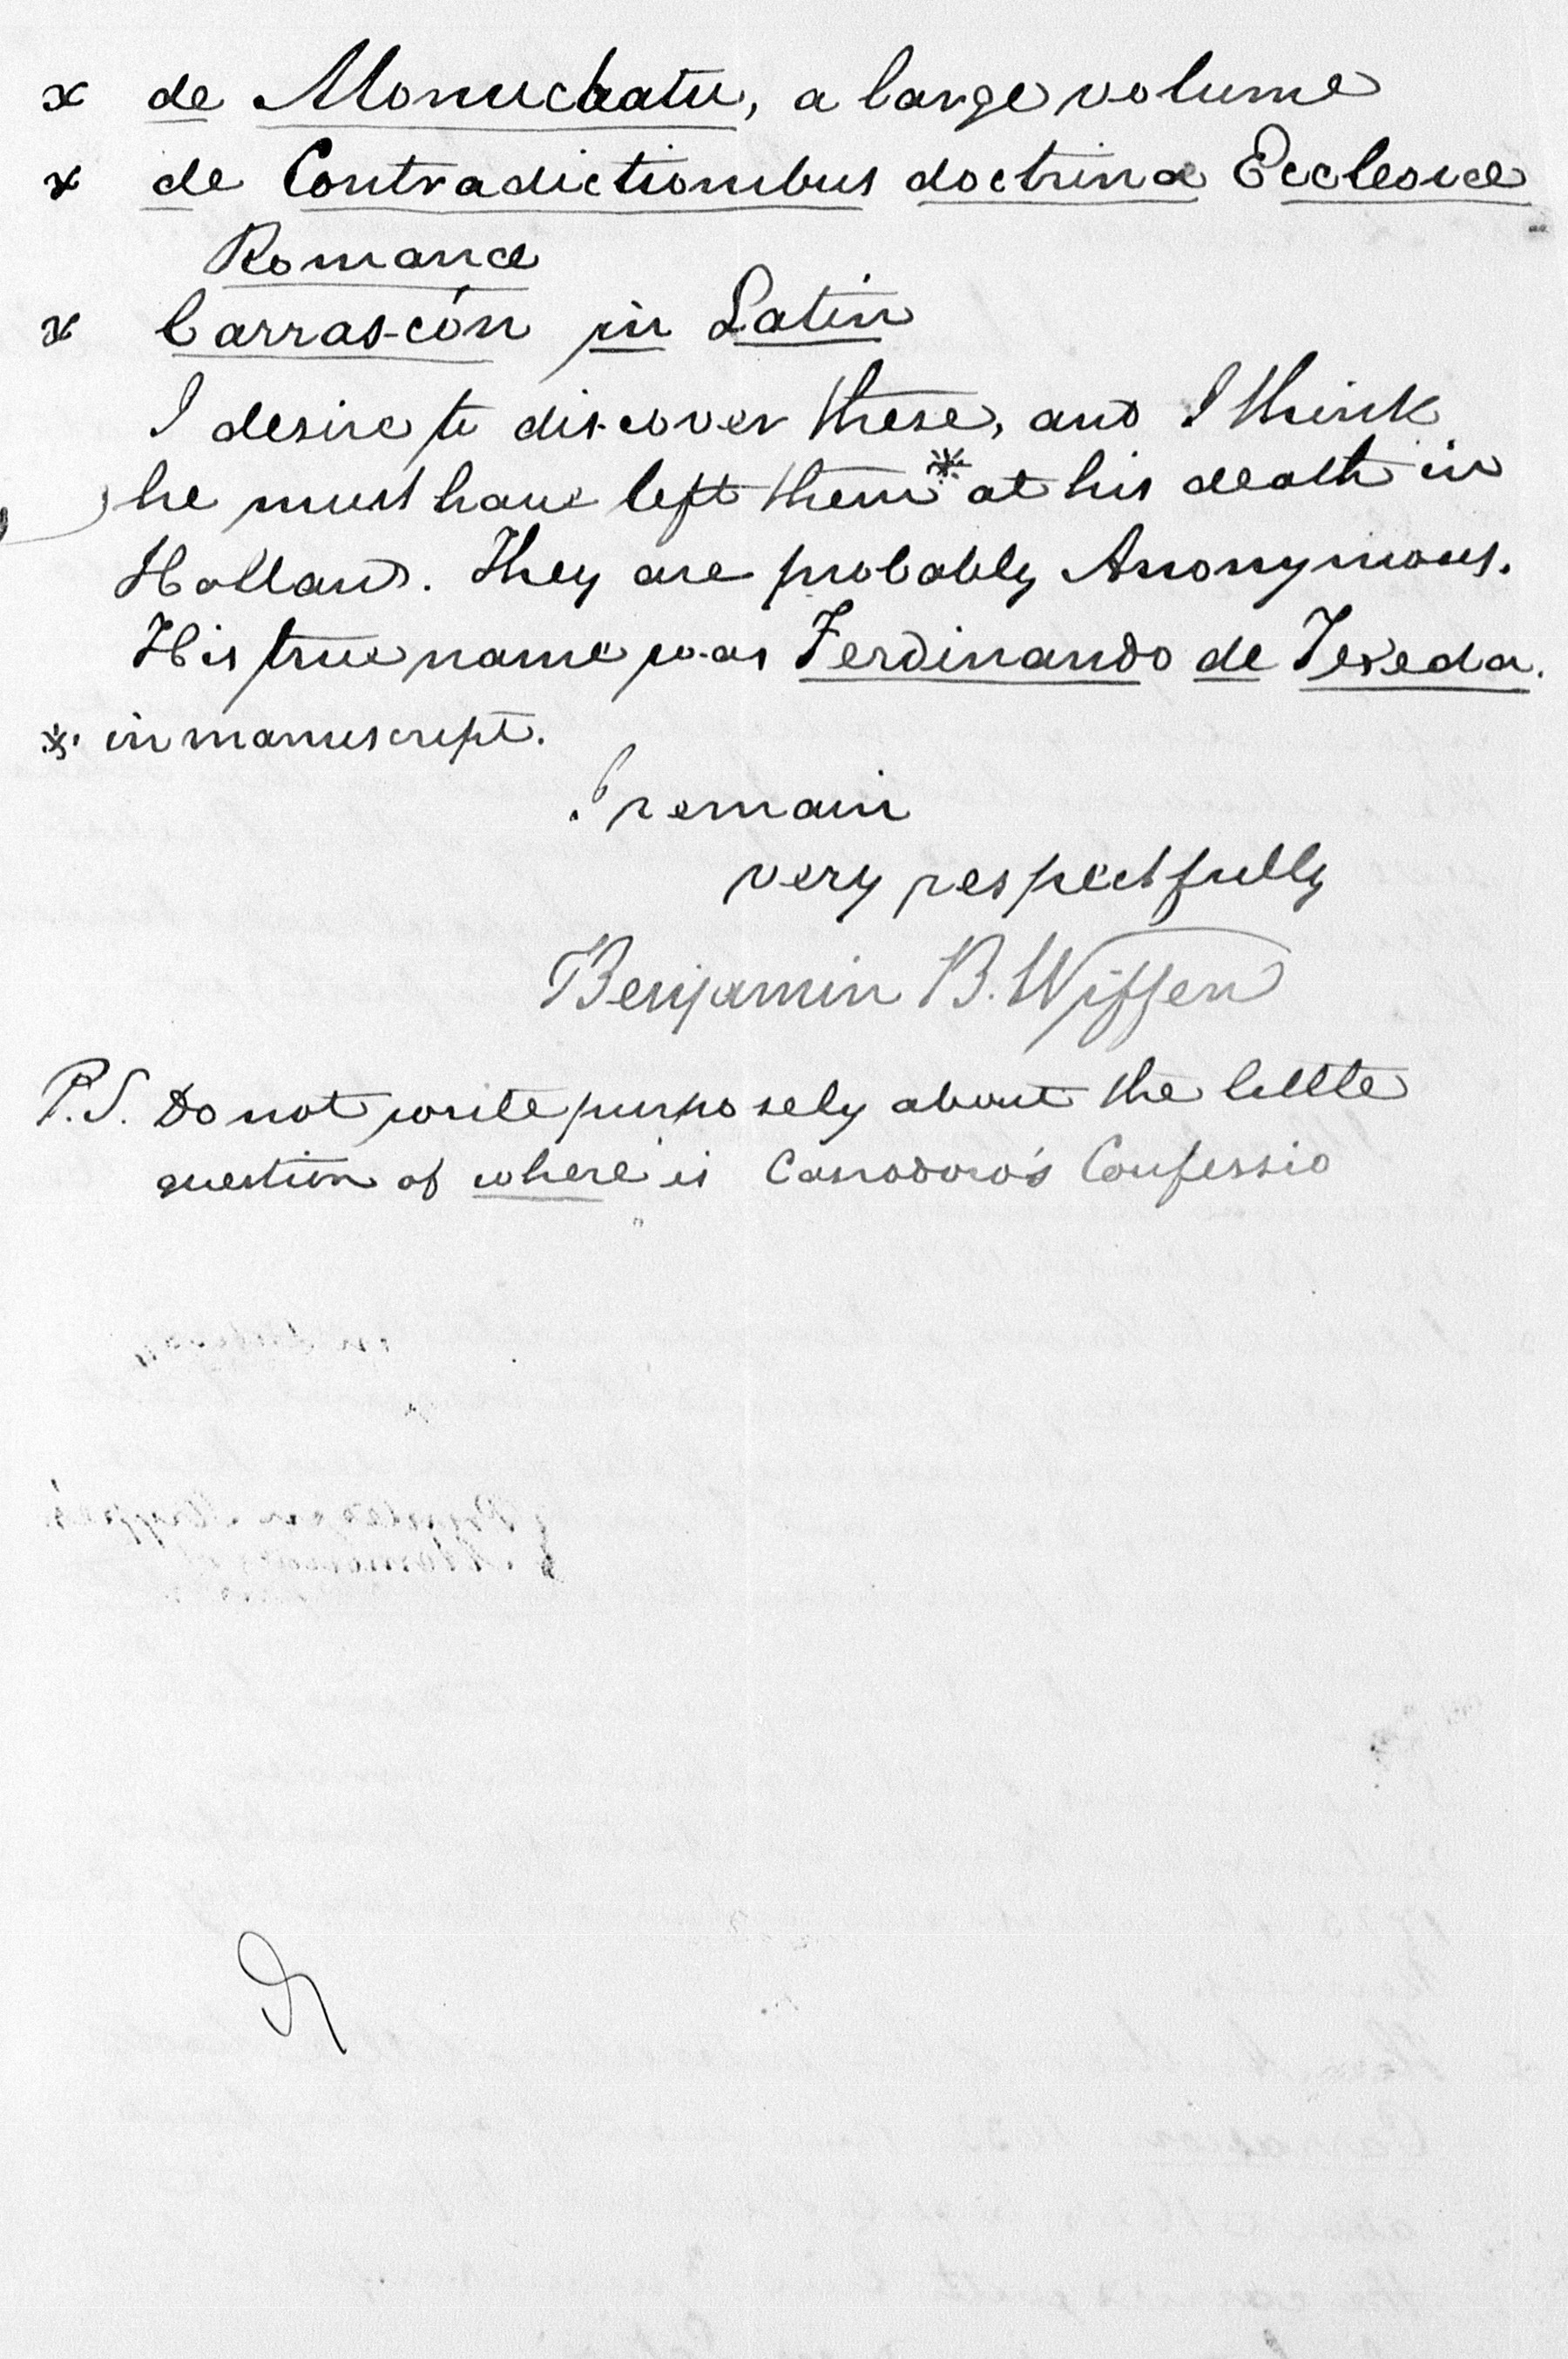 x de Monuchatu, a large volume
x de Contradictionibus doctrinæ Ecclesiæ
Romanæ
x Carrascón in Latin
I desire to discover these, and I think
he must have left them※ at his death in
Holland. They are probably Anonymous.
His true name was Ferdinando de Texeda.
※ in manuscript.
I remain
very respectfully
Benjamin B. Wiffen
P.S. Do not write purposely about the little
question of where is Cassodoro's Confessio